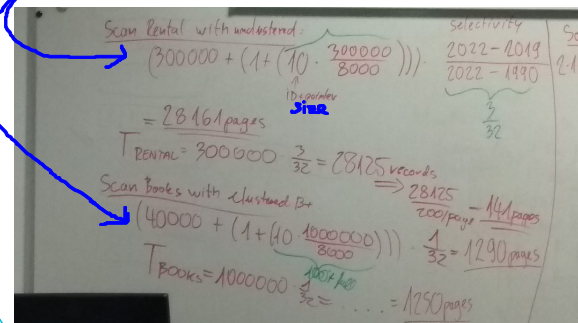 Scan Rental with unclustered:
selectivity
(300000 + (1+(10 · 300000/8000))) · 2022-2019/2022-1990
ID+pointer
size
3/32
= 28161 pages
T RENTAL = 300000 · 3/32 = 28125 records
⇒ 28125/200/page = 141 pages
Scan Books with clustered B+
(40000 + (1+(10 · 1000000/8000))) · 1/32 = 1290 pages
T BOOKS = 1000000 · 1/32 = ..... = 1250 pages